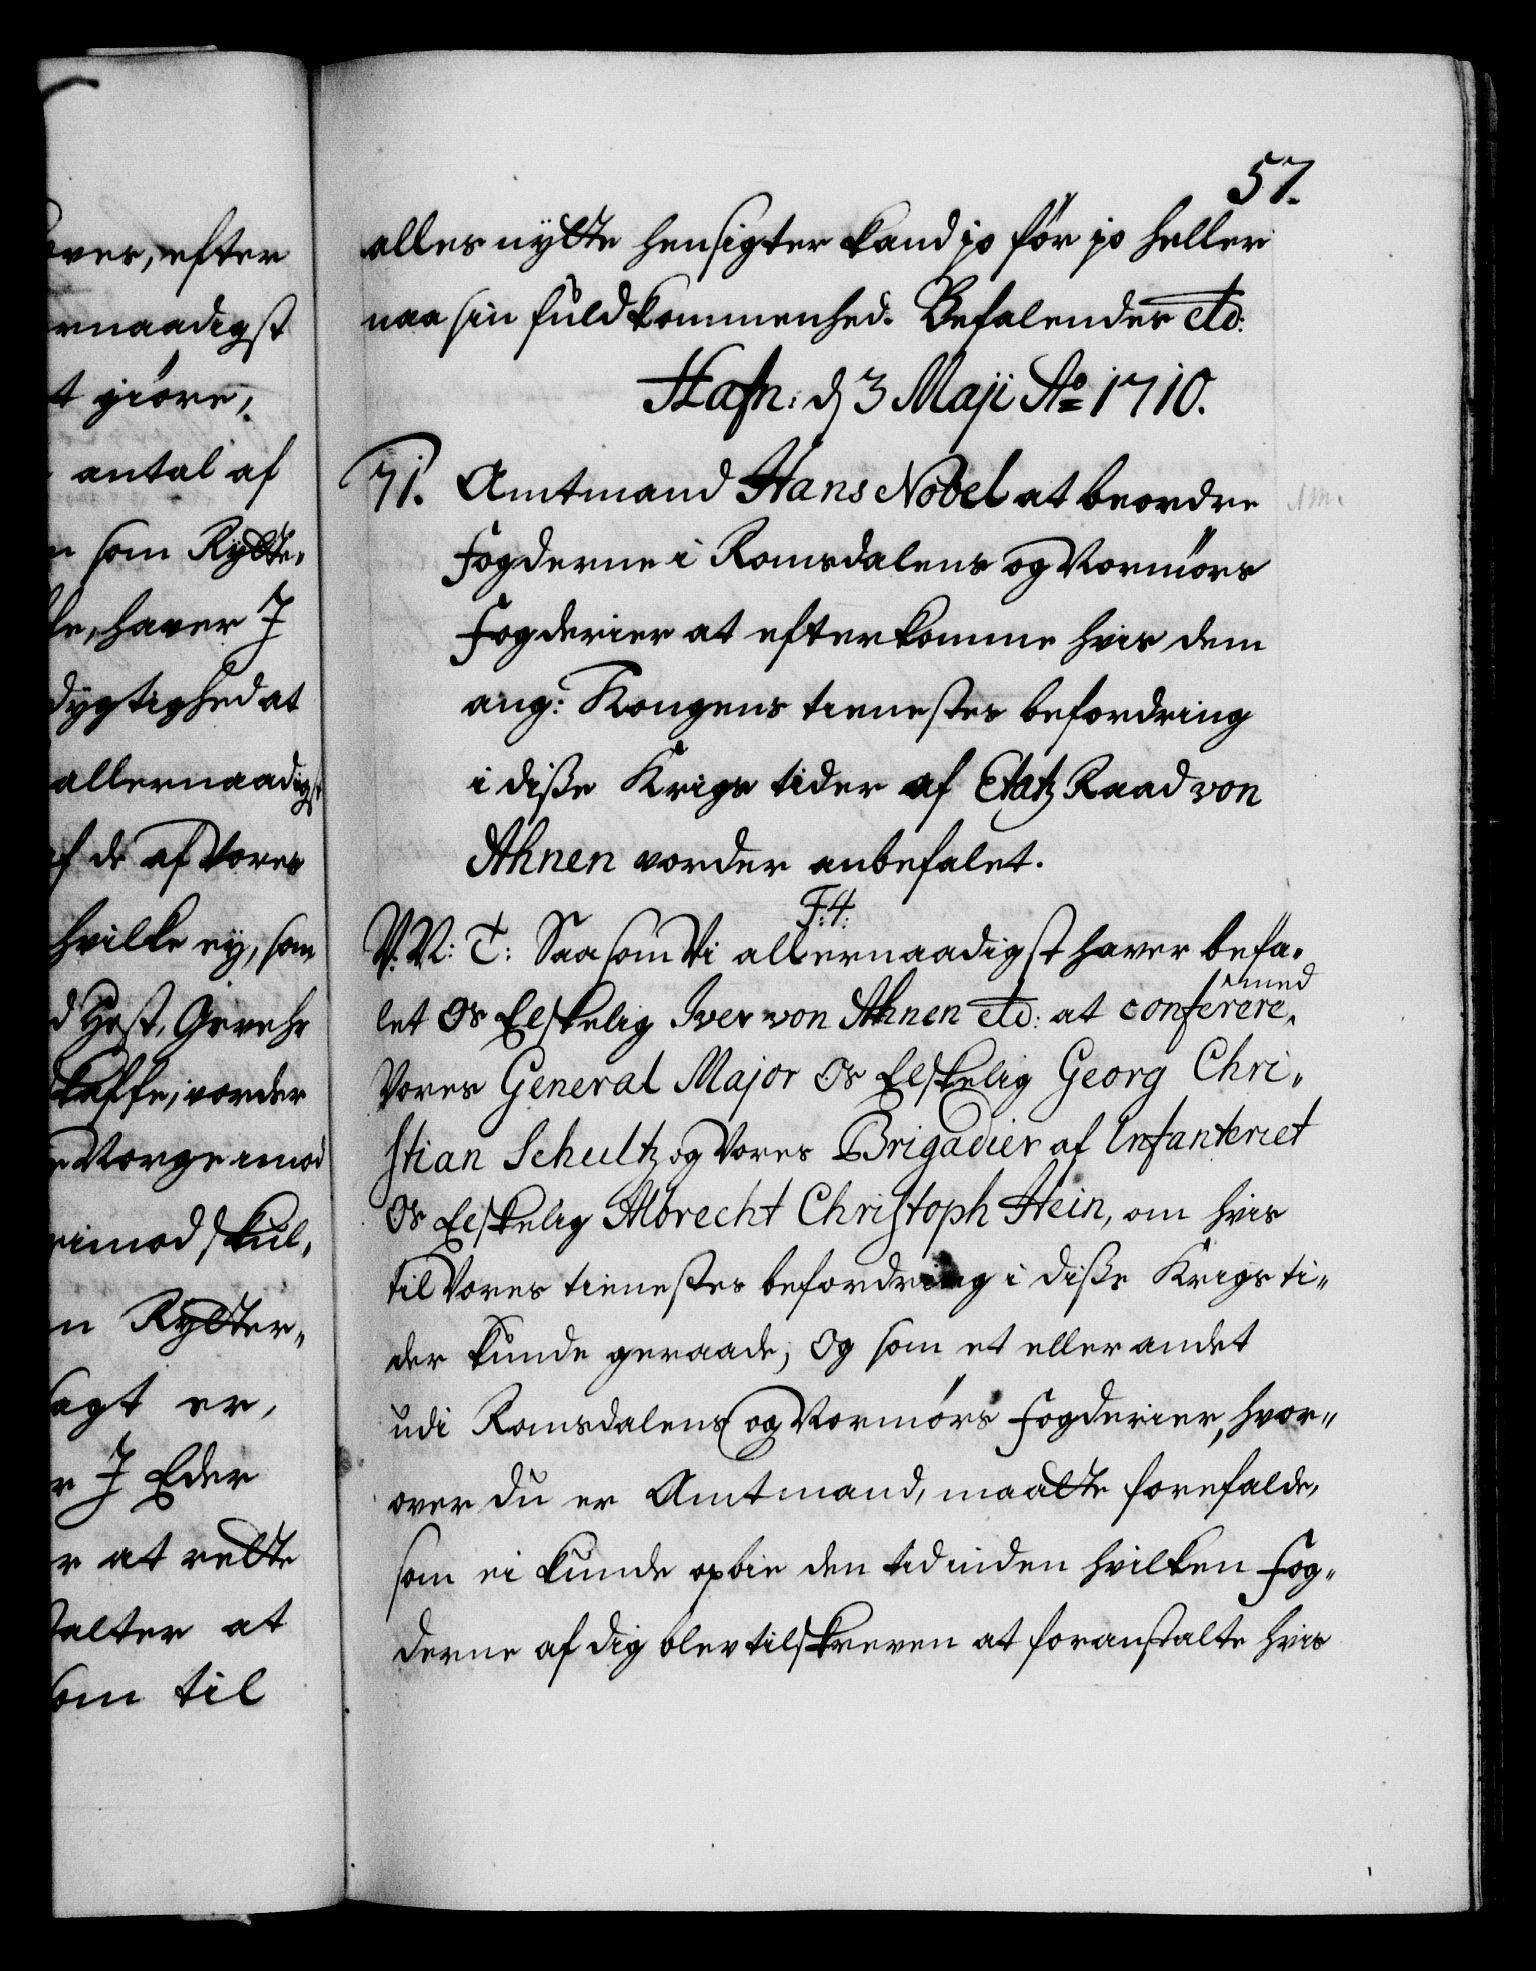 oves, efter
rnaadigst
t giøre,
antal af
n som Rytte-
le, haver J
dygtighed at
allernaadigst
af de af Vores
hvilke ey, som
d Hest, Gevehr
skaffe, vorder
Norge imod
rimod skul-
n Rytter-
sagt er,
r J Eder
r at rette
stalter at
som til
57.
alles nytte hensigter kand jo før jo heller
naa sin fuldkommenhed. Befalendes etc:
Hafn: d 3 Maji Ao 1710.
71. Amtmand Hans Nobel at beordre
Fogderne i Romsdalens og Normørs
Fogderier at efterkomme hvis dem
ang: Kongens tienestes befordring
i diße Krigs tider af Etatz Raad von
Ahnen vorder anbefalet.
F: 4:
V: N: T: Saasom Vi allernaadigst haver befa-
let Os Elskelig Iver von Ahnen etc: at conferere med
Vores General Major Os Elskelig Georg Chri-
stian Schultz og Vores Brigadier af Infanteriet
Os Elskelig Albrecht Christoph Hein, om hvis
til Vores tienestes befordring i diße Krigs ti-
der kunde geraade; Og som et eller andet
udi Romsdalens og Normørs Fogderier, hvor-
over du er Amtmand, maatte forefalde,
som ei kunde opbie den tid inden hvilken Fog-
derne af dig blev tilskreven at foranstalte hvis